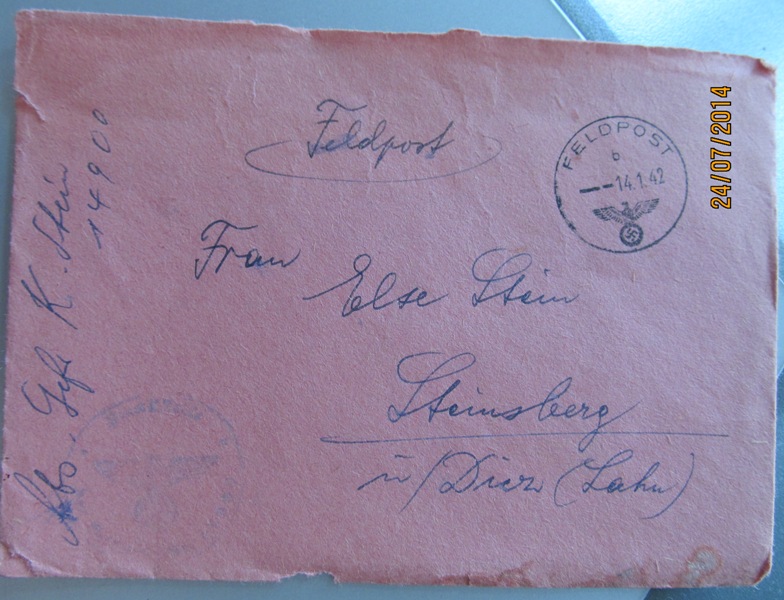 Feldpost
FELDPOST
b
-14.1.42
24/07/2014
Frau
Else Stein
Steinsberg
ü/Diez (Lahn)
Abs. Gefr K. Stein
14900